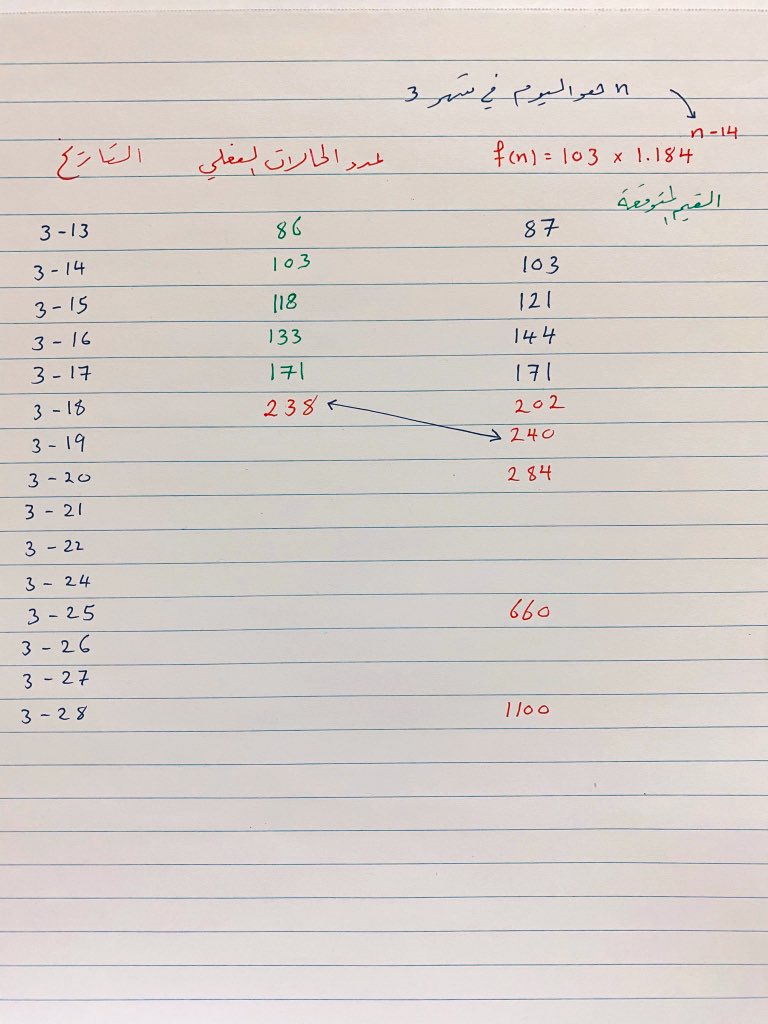 n هو اليوم في شهر 3
التاريخ عدد الحالات الفعلي f(n) = 103 x 1.184^n-14
القيم المتوقعة
3-13 86 87
3-14 103 103
3-15 118 121
3-16 133 144
3-17 171 171
3-18 238 202
3-19 240
3-20 284
3-21
3-22
3-24
3-25 660
3-26
3-27
3-28 1100